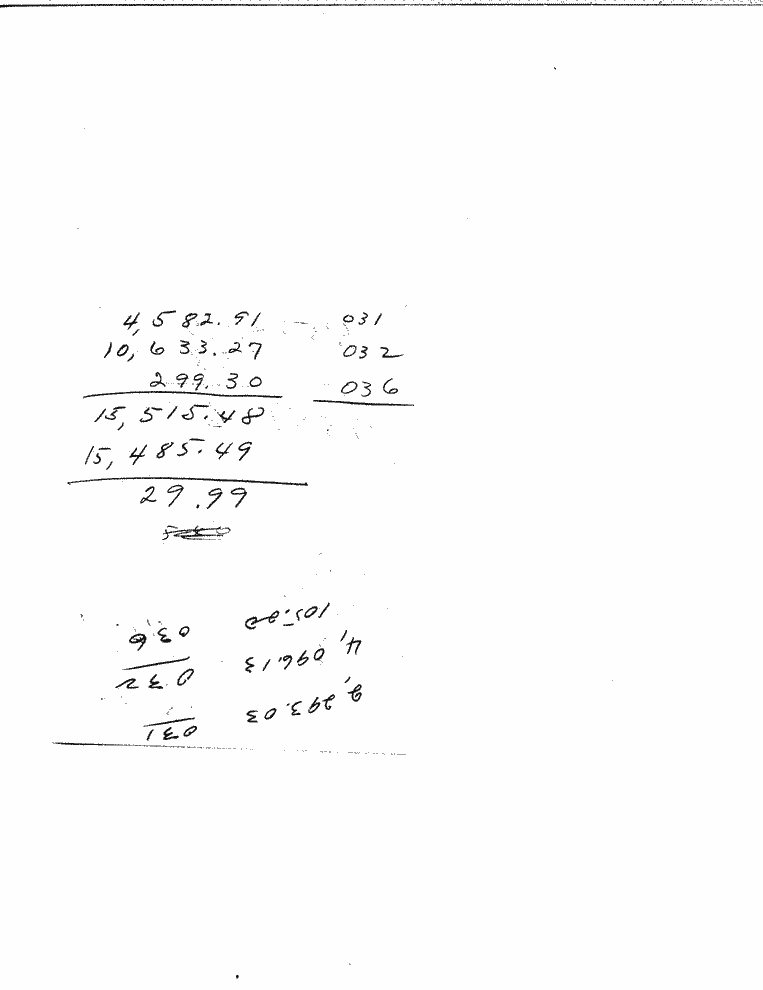 4,582.91 031
10,633.27 032
299.30 036
15,515.48
15,485.49
29.99
031 2,293.03
032 4,096.13
036